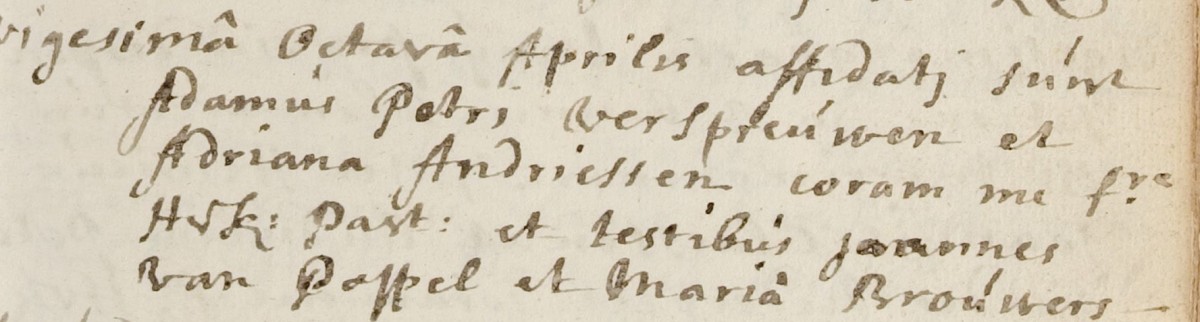 vigesimâ Octavâ Aprilis affidatj súnt
Adamús Petri verspreúwen et
Adriana Andriessen coram me fre
HVK: Past: et testibús joannes
van Poppel et Mariâ Broúwers